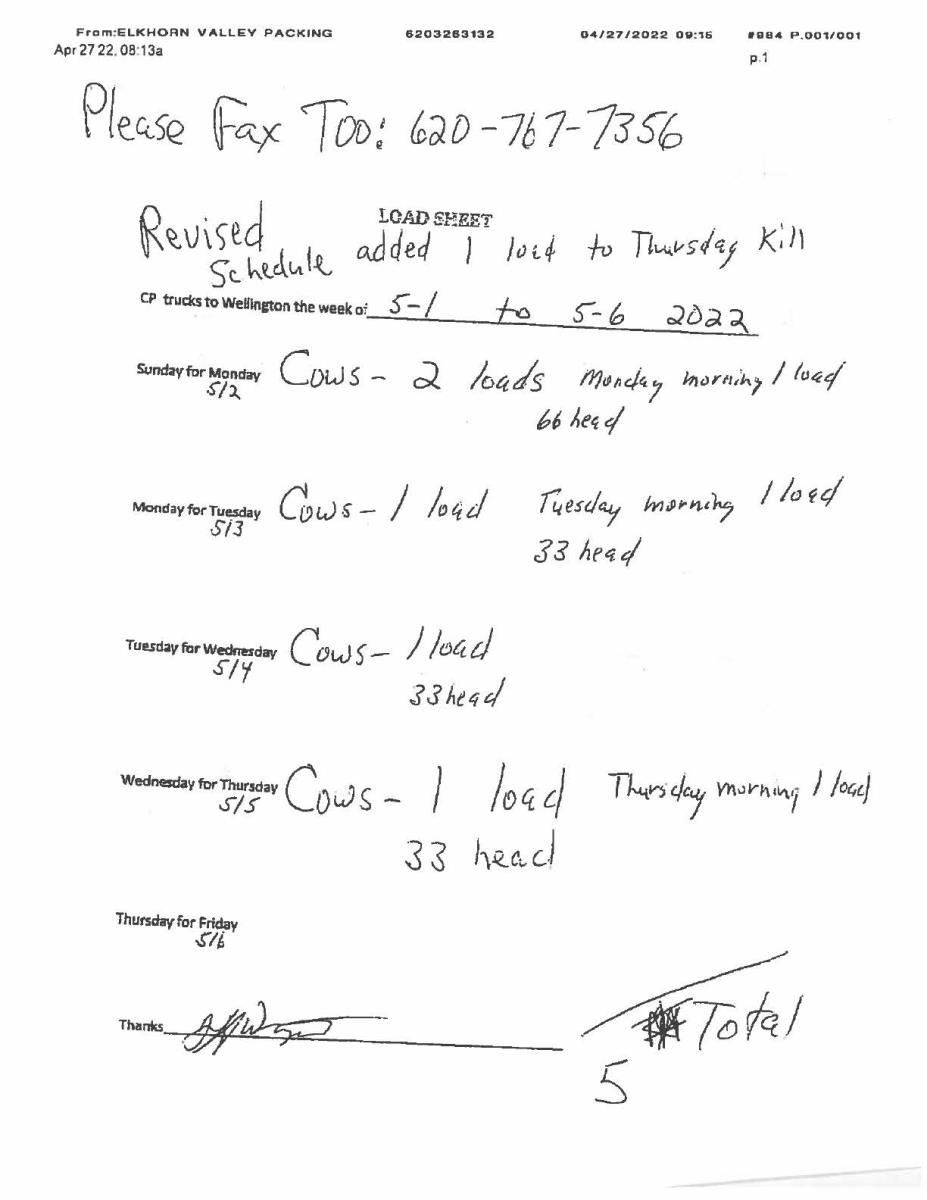 From:ELKHORN VALLEY PACKING 6203263132 04/27/2022 09:15 #984 P.001/001
Apr 27 22, 08:13a p.1
Please Fax Too: 620-767-7356
LOAD SHEET
Revised Schedule added 1 load to Thursday Kill
CP trucks to Wellington the week of 5-1 to 5-6 2022
Sunday for Monday Cows - 2 loads Monday morning 1 load
5/2 66 head
Monday for Tuesday Cows - 1 load Tuesday morning 1 load
5/3 33 head
Tuesday for Wednesday Cows - 1 load
5/4 33 head
Wednesday for Thursday Cows - 1 load Thursday morning 1 load
5/5 33 head
Thursday for Friday
5/6
Thanks
Total
5